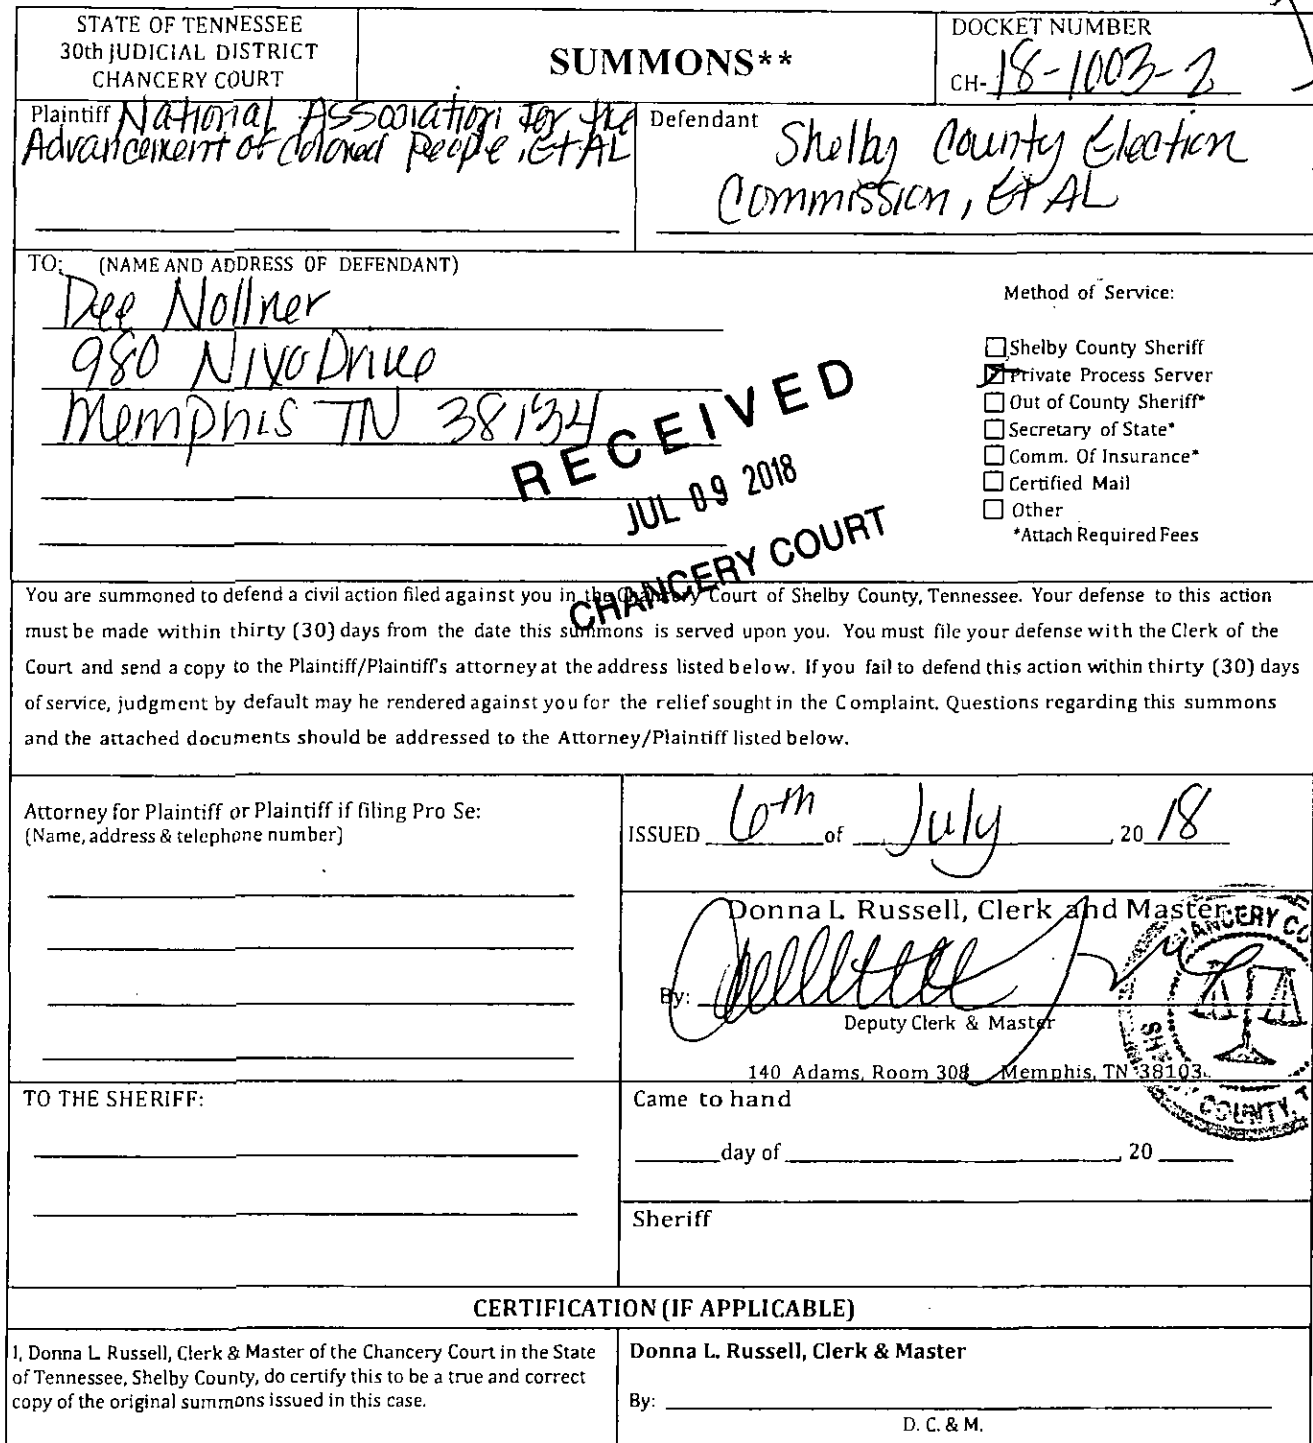 STATE OF TENNESSEE
30th JUDICIAL DISTRICT
CHANCERY COURT
SUMMONS**
DOCKET NUMBER
CH- 18-1003-2
Plaintiff National Association for the
Advancement of Colored People, Et AL
Defendant Shelby County Election
Commission, Et AL
TO: (NAME AND ADDRESS OF DEFENDANT)
Dee Nollner
980 Nixo Drive
Memphis TN 38134
Method of Service:
Shelby County Sheriff
Private Process Server
Out of County Sheriff*
Secretary of State*
Comm. Of Insurance*
Certified Mail
Other
*Attach Required Fees
RECEIVED
JUL 09 2018
CHANCERY COURT
You are summoned to defend a civil action filed against you in the Chancery Court of Shelby County, Tennessee. Your defense to this action
must be made within thirty (30) days from the date this summons is served upon you. You must file your defense with the Clerk of the
Court and send a copy to the Plaintiff/Plaintiff's attorney at the address listed below. If you fail to defend this action within thirty (30) days
of service, judgment by default may be rendered against you for the relief sought in the Complaint. Questions regarding this summons
and the attached documents should be addressed to the Attorney/Plaintiff listed below.
Attorney for Plaintiff or Plaintiff if filing Pro Se:
(Name, address & telephone number)
ISSUED 6th of July, 20 18
Donna L. Russell, Clerk and Master
By:
Deputy Clerk & Master
140 Adams, Room 308 Memphis, TN 38103
CHANCERY CO
SHELBY COUNTY, T
TO THE SHERIFF:
Came to hand
day of , 20
Sheriff
CERTIFICATION (IF APPLICABLE)
I, Donna L. Russell, Clerk & Master of the Chancery Court in the State
of Tennessee, Shelby County, do certify this to be a true and correct
copy of the original summons issued in this case.
Donna L. Russell, Clerk & Master
By:
D. C. & M.